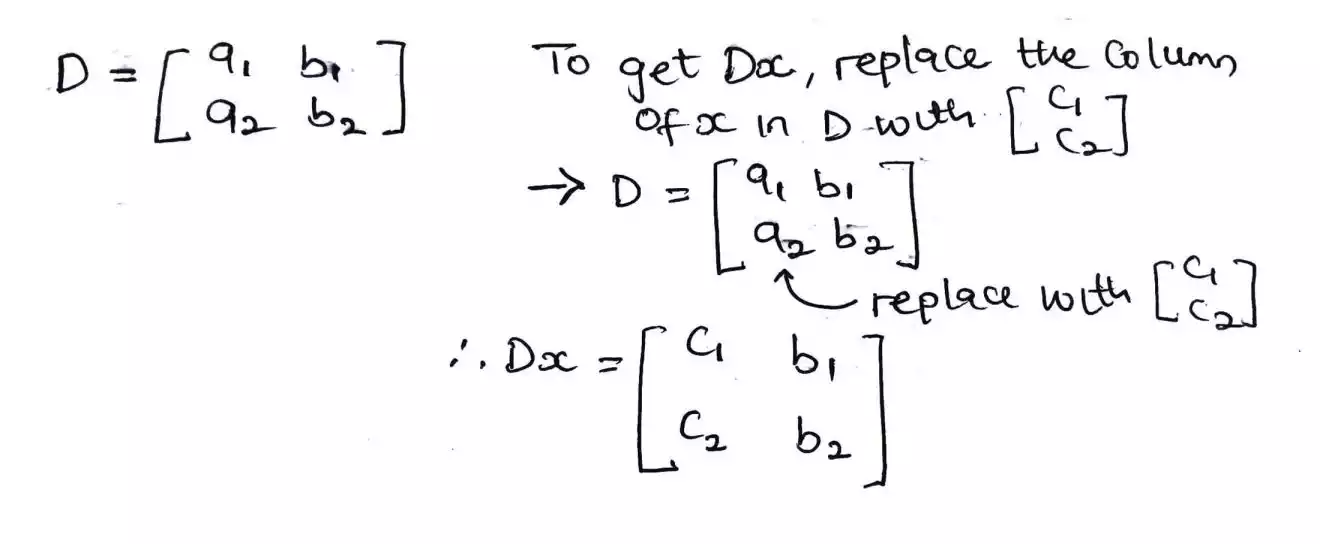 D = [a₁ b₁
a₂ b₂]
To get Dx, replace the column
of x in D with [c₁
c₂]
→ D = [a₁ b₁
a₂ b₂]
replace with [c₁
c₂]
∴ Dx = [c₁ b₁
c₂ b₂]